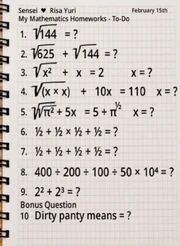 Sensei ♥ Risa Yuri February 15th
My Mathematics Homeworks - To-Do
1. √144 = ?
2. √625 + √144 = ?
3. √x² + x = 2 x = ?
4. √(x × x) + 10x = 110 x = ?
5. √√π² + 5x = 5 + π^½ x = ?
6. ½ + ½ × ½ + ½ = ?
7. ½ + ½ + ½ + ½ = ?
8. 400 ÷ 200 ÷ 100 ÷ 50 × 10⁴ = ?
9. 2² + 2³ = ?
Bonus Question
10 Dirty panty means = ?